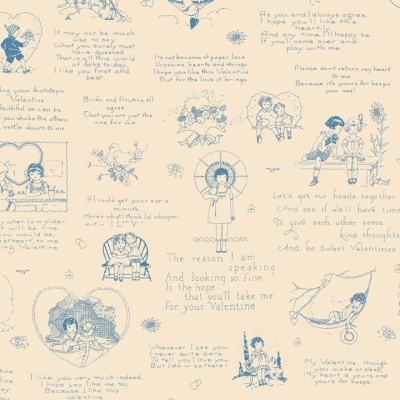 It may not be much
use to say
What you surely must
have guessed
That in all this world
of folks to-day
I like you first and
best
Its not because of paper lace
Or posies, hearts and things,
I hope you like this Valentine
But for the love it brings.
As you and I always agree.
I hope you'll like this
heartily
And any time I'll happy be
If you'll come over and
play with me
Please don't return my heart
to me
Because its yours for keeps
you see!
your footsteps
Valentine
faithful as can be,
you shake the others
settle down to me.
Birds and flowers all
agree
That you are just the
one for me
If I could get your ear a
minute
Here's what I think I'd whisper
in it
when I am older
it will be fine
you would be,
sweetheart, to me
my Valentine
Let's get our heads together
And see if we'll have time
To give each other some
kind thoughts
And be Sweet Valentines
The reason I am
speaking
And looking so fine
Is the hope
that you'll take me
For your Valentine
I like you very much indeed.
I hope you like me, too,
Because I like this
valentine,
Whenever I see you,
I never quite dare
To tell you I love you.
But I do - so there!
My Valentine, though
you wake or sleep,
My heart is yours and
yours for keeps